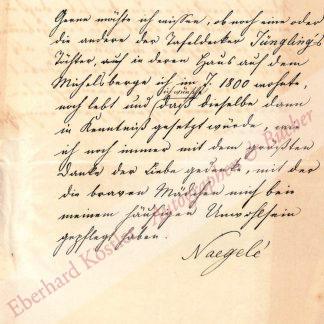 Gerne möchte ich wissen, ob noch eine oder
die andere der Tafeldecker Jüngling's
Töchter, auf in deren Haus auf dem
Michelsberge ich im J. 1800 wohnte,
noch lebt und ich wünschte daß dieselbe dann
in Kenntniß gesetzt würde, wie
ich noch immer mit dem größten
Danke der Liebe gedenke, mit der
die braven Mädchen mich bei
meinem häufigen Unwohlsein
gepflegt haben.
Naegelé
Eberhard Köstler Autographen & Bücher